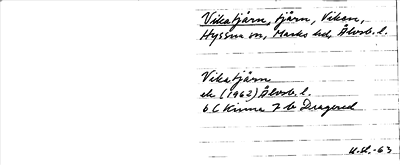 Vikatjärn, tjärn, Viken,
Hyssna sn, Marks hd, Älvsb. l.
Vikatjärn
ek (1962) Älvsb. l.
6 C Kinna 7 b Dragered
-63